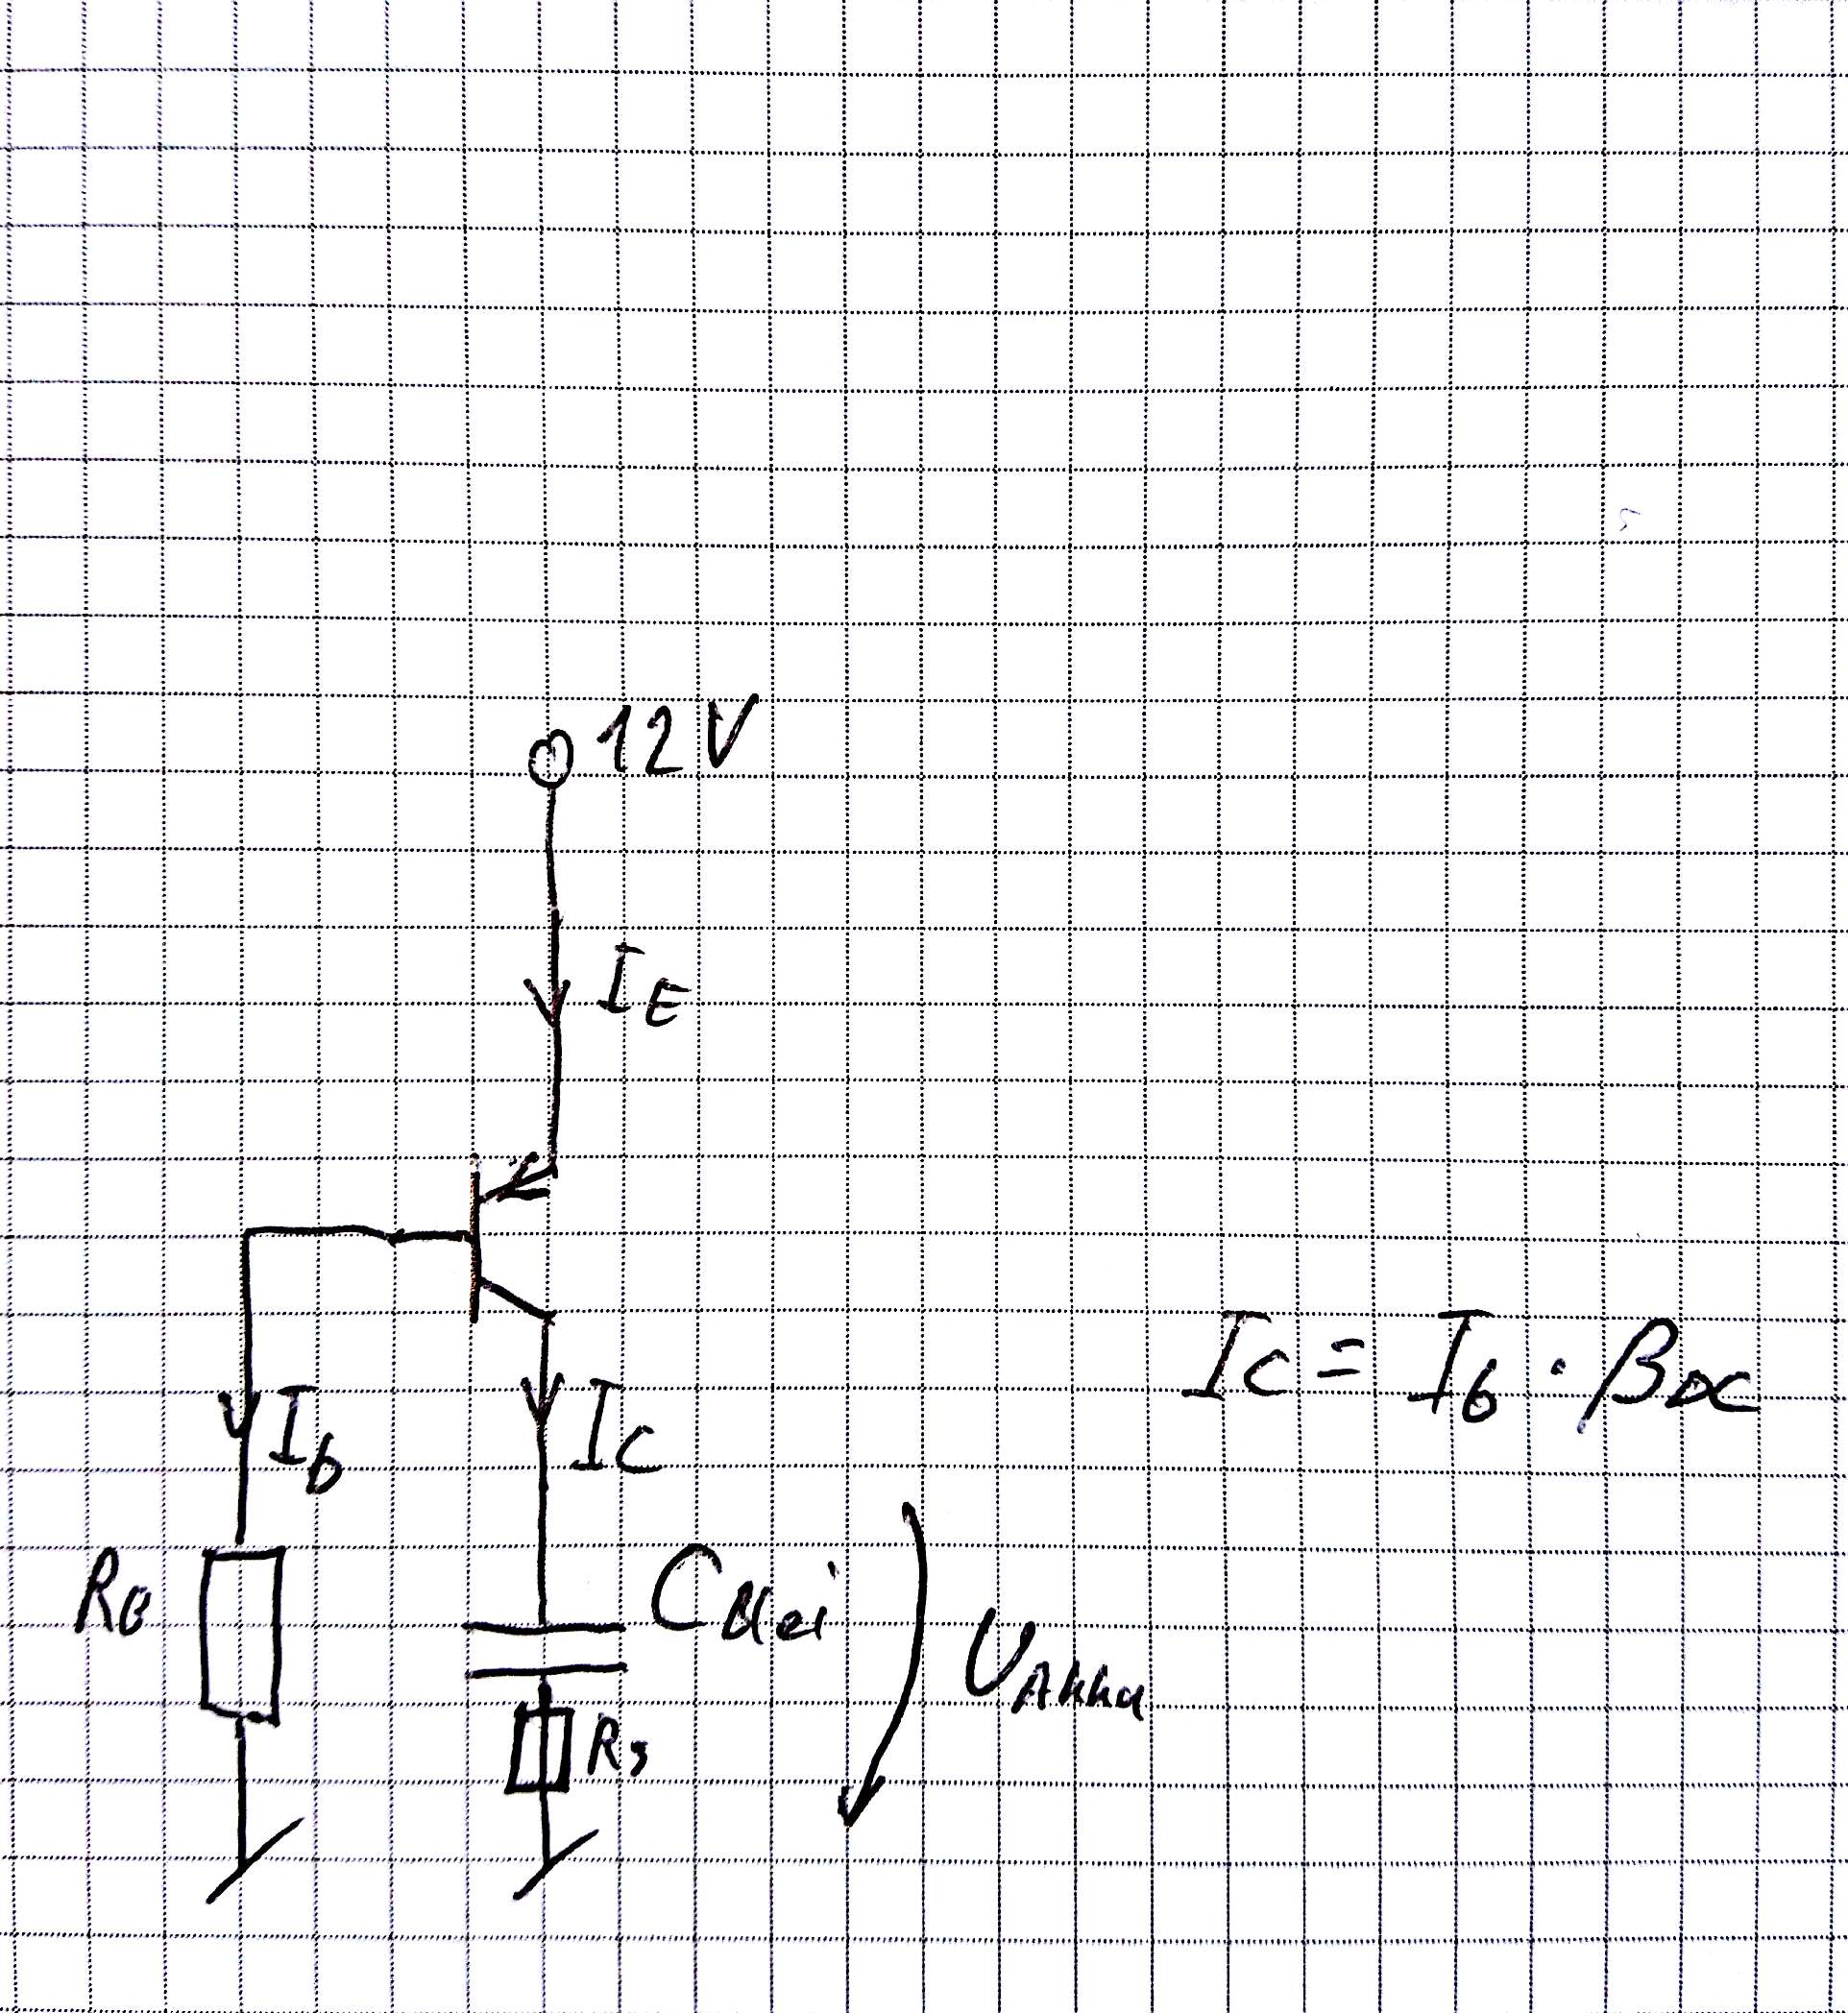 12V
I_E
I_C = I_b · β_DC
I_b
I_C
R_B
C_Blei
U_Akku
R_s